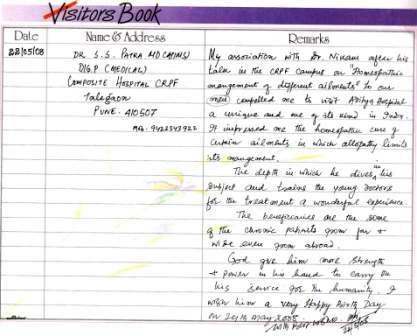 Visitors Book
Date Name & Address Remarks
22/05/08
DR S.S. PATRA MD (AIIMS)
DIG.P (MEDICAL)
COMPOSITE HOSPITAL CRPF
Talegaon
PUNE. 410507
My association with Dr. Nikam after his
talk in the CRPF campus on "Homeopathic
management of different ailments" to our
men compelled me to visit Aditya Hospital
a unique and one of its kind in India.
It impressed me the homeopathic cure of
certain ailments in which allopathy limits
its management.
The depth in which he dives in his
subject and trains the young doctors
for the treatment a wonderful experience.
The beneficiaries are the some
of the chronic patients from far &
wide even from abroad.
God give him more strength
& power in his hand to carry on
his service for the humanity. I
wish him a very Happy Birth Day
on 24th may 2008